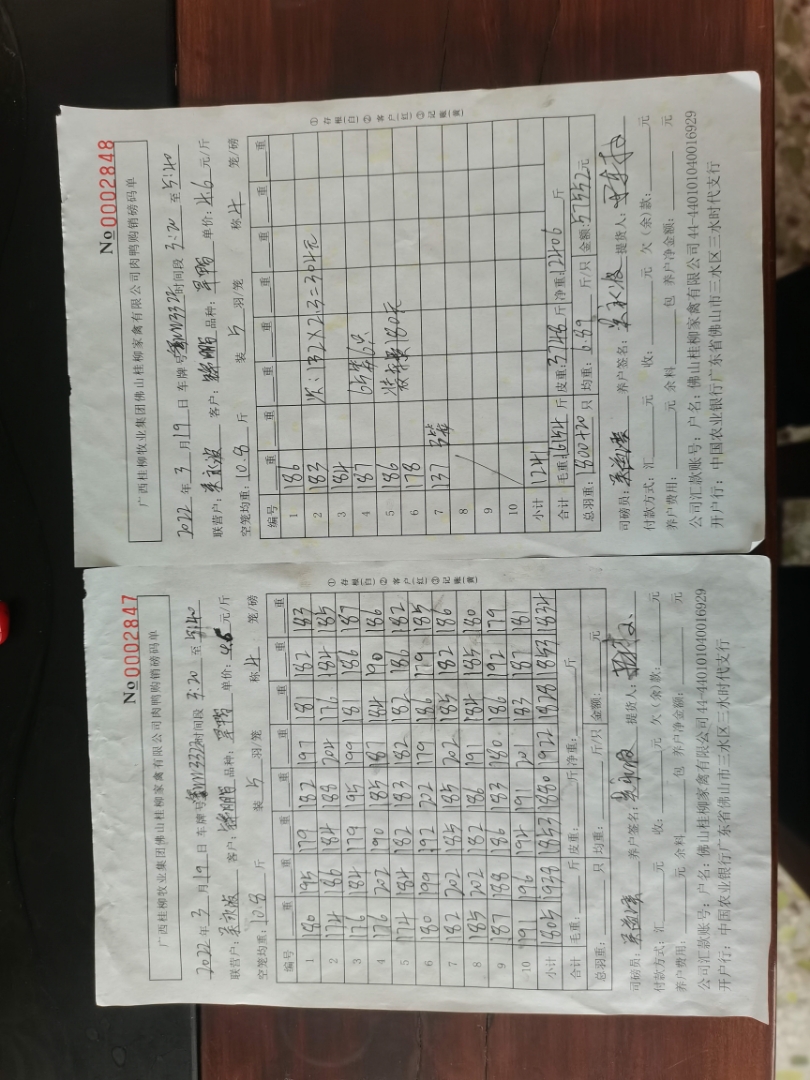 No 0002847
广西桂柳牧业集团佛山桂柳家禽有限公司肉鸭购销磅码单
2022 年 3 月 19 日 车牌号 时间段 3:20 至 5:40
联营户: 客户: 品种: 单价: 4.6 元/斤
空笼均重: 10.8 斤 装 5 羽/笼 称 4 笼/磅
编号 重 重 重 重 重 重 重 重
1 180 195 179 182 197 181 182 183
2 174 186 184 188 204 176 184 185
3 176 184 179 195 199 181 186 187
4 176 202 190 185 187 184 190 186
5 174 184 182 183 182 182 186 182
6 180 199 192 202 179 186 179 185
7 182 202 185 185 202 185 182 186
8 185 202 182 186 191 184 185 180
9 187 188 186 183 180 186 192 179
10 191 196 194 191 201 183 187 181
小计 1805 1938 1853 1880 1922 1828 1853 1834
合计 毛重: 斤 皮重: 斤 净重: 斤
总羽重: 只 均重: 斤/只 金额: 元
①存根(白)②客户(红)③记账(黄)
司磅员: 养户签名: 提货人:
付款方式: 汇 元 收: 元 欠(余)款: 元
养户费用: 元 余料 包 养户净金额: 元
公司汇款账号: 户名: 佛山桂柳家禽有限公司 44-440101040016929
开户行: 中国农业银行广东省佛山市三水区三水时代支行
No 0002848
广西桂柳牧业集团佛山桂柳家禽有限公司肉鸭购销磅码单
2022 年 3 月 19 日 车牌号 时间段 3:20 至 5:40
联营户: 客户: 品种: 单价: 4.6 元/斤
空笼均重: 10.8 斤 装 5 羽/笼 称 4 笼/磅
编号 重 重 重 重 重 重 重 重
1 186
2 183 次: 132×2.3=304元
3 184
4 187
5 186 180元
6 178
7 137 3笼
8
9
10
小计 1241
合计 毛重: 16154 斤 皮重: 3748 斤 净重: 12406 斤
总羽重: 1800+20 只 均重: 6.89 斤/只 金额: 57552 元
①存根(白)②客户(红)③记账(黄)
司磅员: 养户签名: 提货人:
付款方式: 汇 元 收: 元 欠(余)款: 元
养户费用: 元 余料 包 养户净金额: 元
公司汇款账号: 户名: 佛山桂柳家禽有限公司 44-440101040016929
开户行: 中国农业银行广东省佛山市三水区三水时代支行